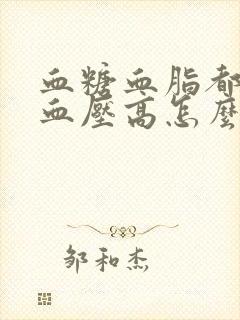 血糖血脂都
血壓高怎麼
邹和杰